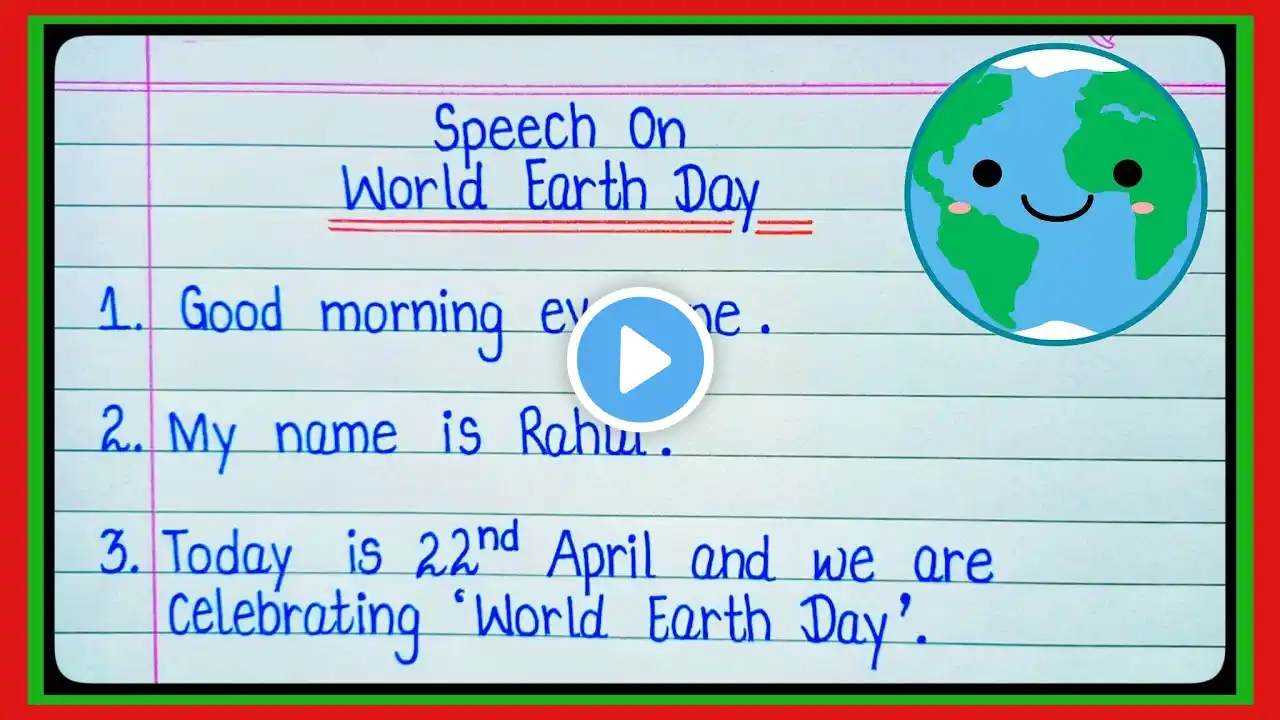 Speech On
World Earth Day
1. Good morning .
2. My name is Rahul.
3. Today is 22nd April and we are
celebrating 'World Earth Day'.